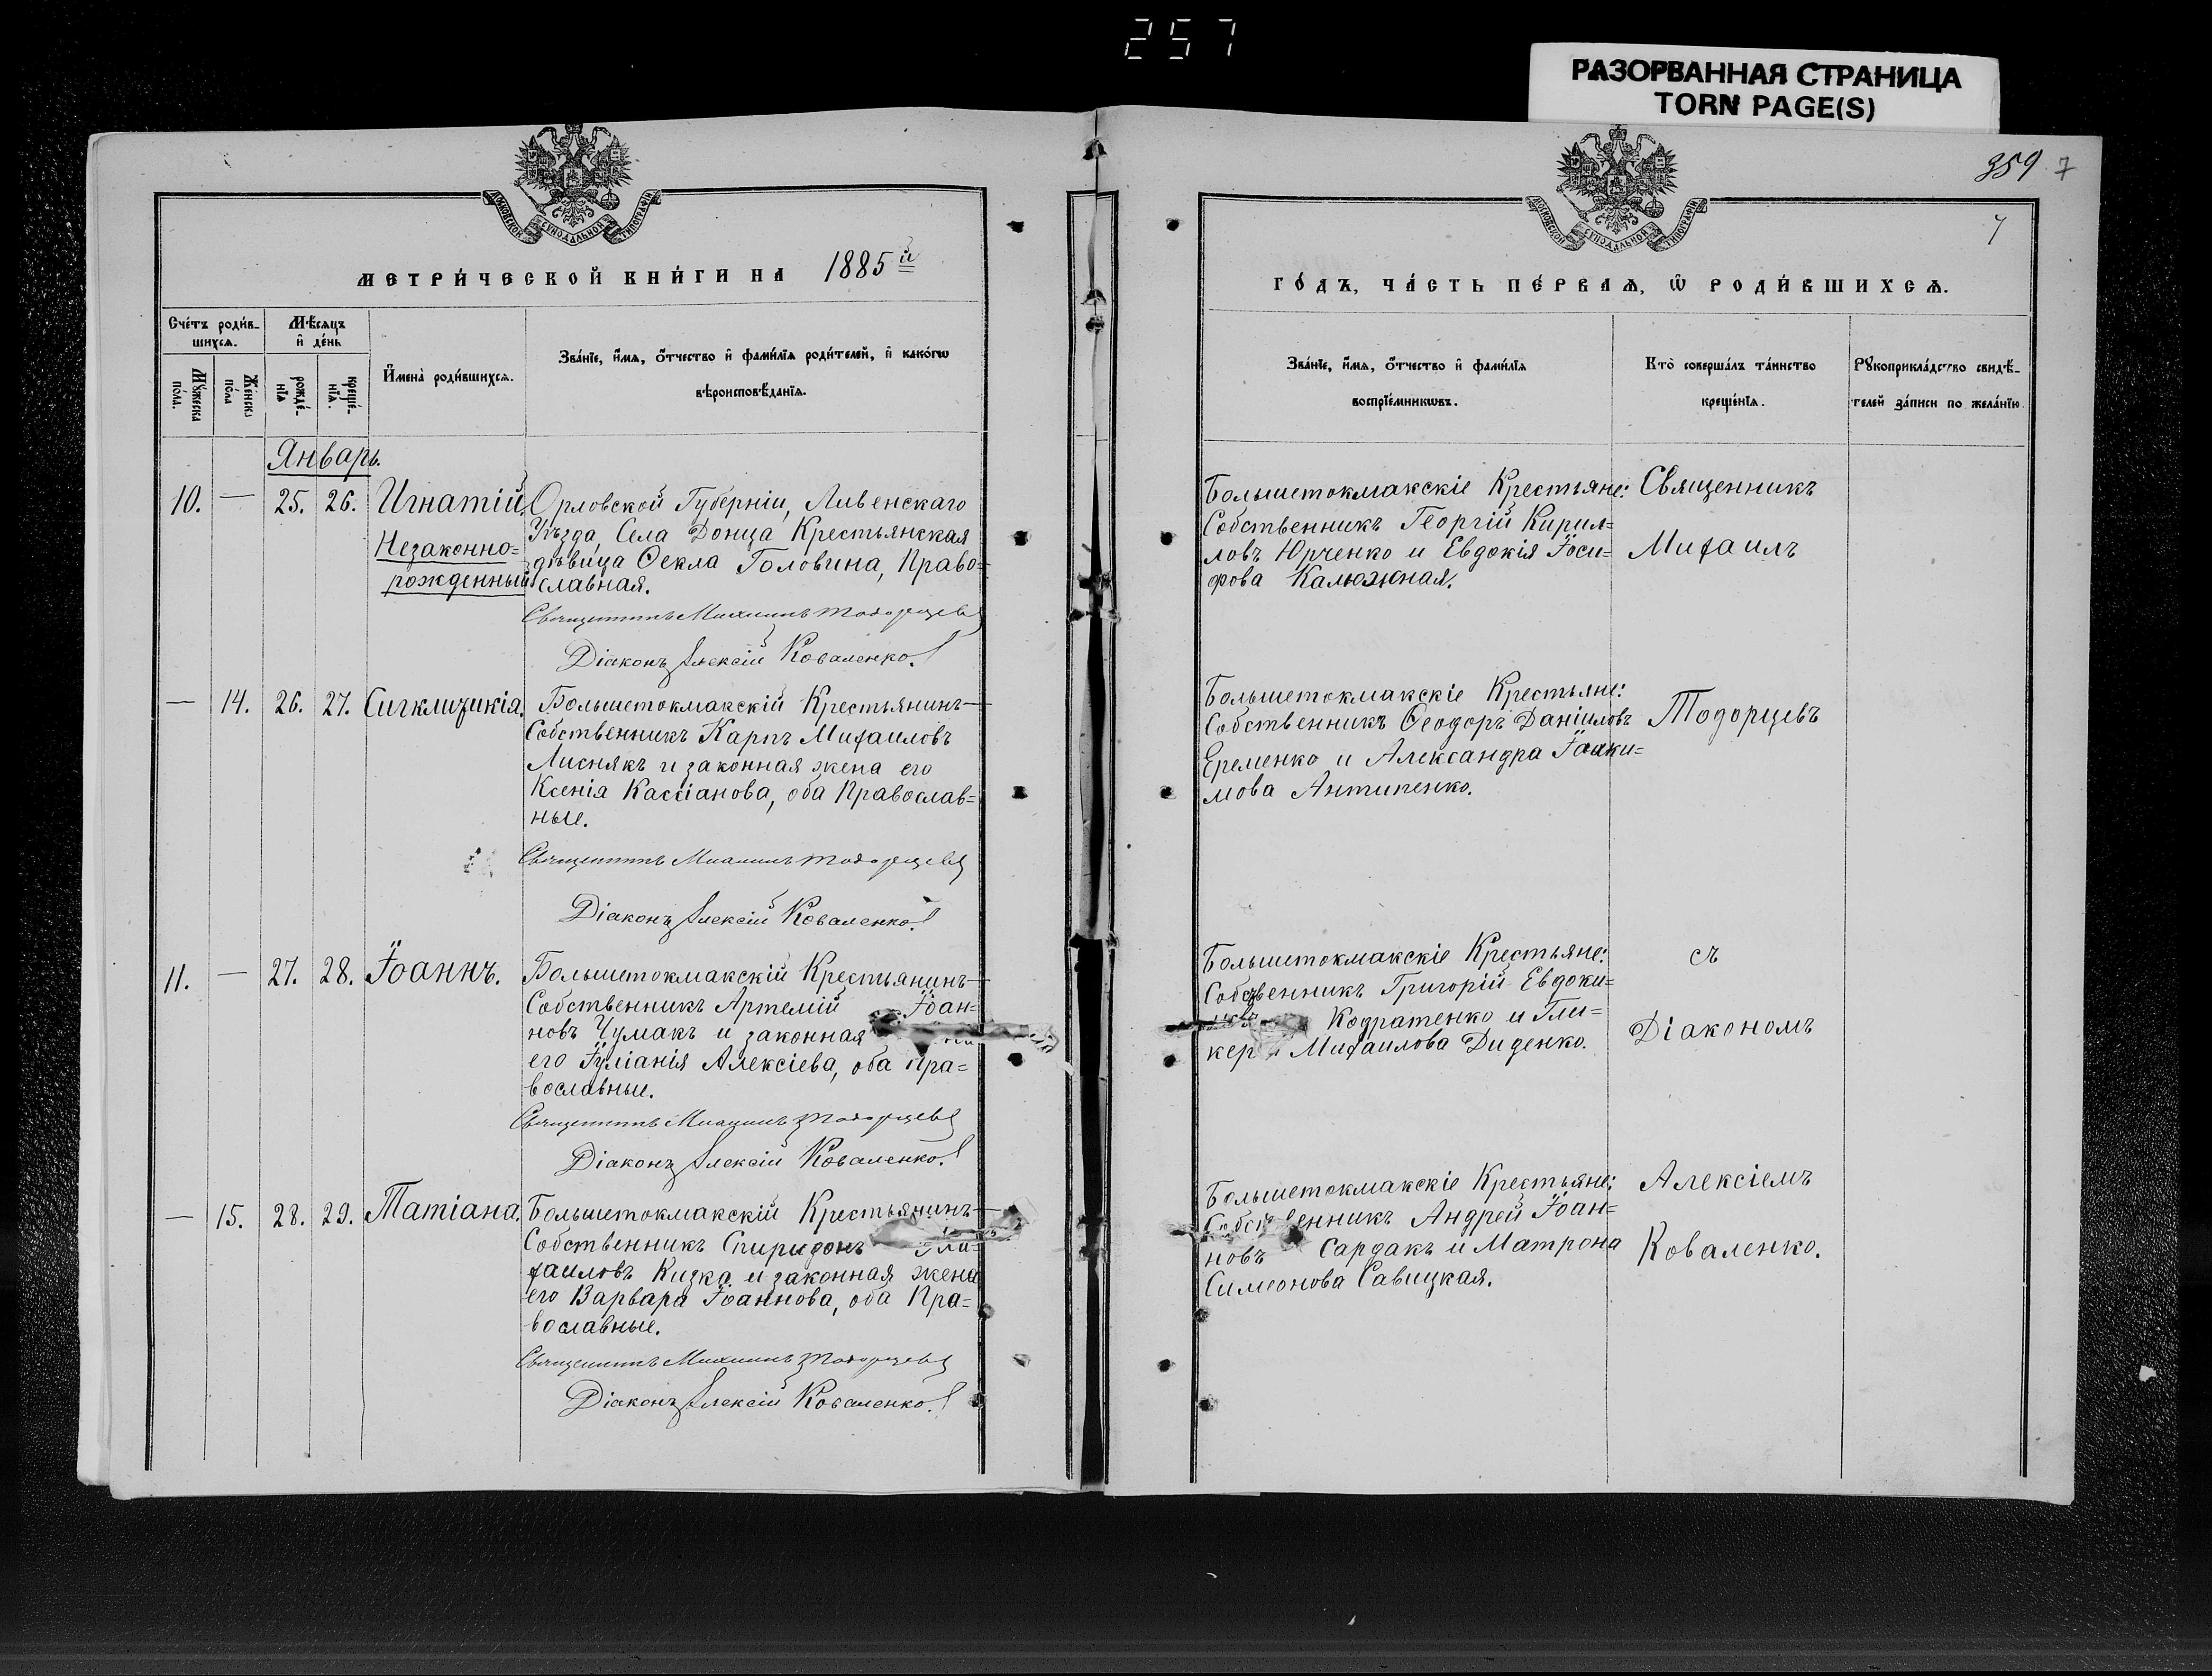 257
РАЗОРВАННАЯ СТРАНИЦА
TORN PAGE(S)
359 7
7
МОСКОВСКОЙ СУНОДАЛЬНОЙ ТИПОГРАФІИ
МЕТРИ́ЧЕСКОЙ КНИ́ГИ НА 1885й
Сче́тъ роди́в-
шихсѧ.
Мѣ́сѧцъ
и҆ де́нь
Му́жеска
по́ла.
Же́нска
по́ла
рожде́-
нїѧ
креще́-
нїѧ.
И҆мена̀ роди́вшихсѧ.
Зва́нїе, и҆́мѧ, ѻ҆́тчество и҆ фами́лїѧ роди́телей, и҆ како́гѡ
вѣроисповѣ́данїѧ.
Январь.
10. — 25. 26. Игнатій,
Незаконно=
рожденный
Орловской Губерніи, Ливенскаго
Уѣзда, Села Донца Крестьянская
дѣвица Ѳекла Головина, Право=
славная.
Священникъ Михаилъ Тодорцевъ
Діаконъ Алексій Коваленко.
— 14. 26. 27. Сигклитикія.
Большетокмакскій Крестьянинъ—
Собственникъ Карпъ Михаиловъ
Лиснякъ и законная жена его
Ксенія Кассіанова, оба Православ=
ные.
Священникъ Михаилъ Тодорцевъ
Діаконъ Алексій Коваленко.
11. — 27. 28. Іоаннъ.
Большетокмакскій Крестьянинъ—
Собственникъ Артемій Іоан=
новъ Чумакъ и законная
его Іуліанія Алексіева, оба Пра=
вославные.
Священникъ Михаилъ Тодорцевъ
Діаконъ Алексій Коваленко.
— 15. 28. 29. Татіана.
Большетокмакскій Крестьянинъ—
Собственникъ Спиридонъ Ми=
хаиловъ Кизка и законная жена
его Варвара Іоаннова, оба Пра=
вославные.
Священникъ Михаилъ Тодорцевъ
Діаконъ Алексій Коваленко.
МОСКОВСКОЙ СУНОДАЛЬНОЙ ТИПОГРАФІИ
ГО́ДЪ, ЧА́СТЬ ПЕ́РВАѦ, Ѡ҆ РОДИ́ВШИХСѦ.
Зва́нїе, и҆́мѧ, ѻ҆́тчество и҆ фами́лїѧ
воспрїе́мникѡвъ.
Кто̀ соверша́лъ та́инство
креще́нїѧ.
Рꙋкоприкла́дство свидѣ́-
телей за́писи по жела́нїю.
Большетокмакскіе Крестьяне:
Собственникъ Георгій Кирил=
ловъ Юрченко и Евдокія Іоси=
фова Калюжная.
Большетокмакскіе Крестьяне:
Собственникъ Ѳеодоръ Даніиловъ
Еременко и Александра Іоаки=
мова Антипенко.
Большетокмакскіе Крестьяне:
Собственникъ Григорій Евдоки=
Кодратенко и Гли=
керія Михаилова Диденко.
Большетокмакскіе Крестьяне:
Собственникъ Андрей Іоан=
новъ Сардакъ и Матрона
Симеонова Савицкая.
Священникъ
Михаилъ
Тодорцевъ
съ
Діакономъ
Алексіемъ
Коваленко.